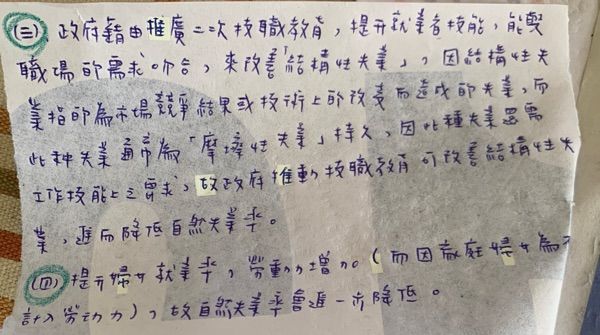 (三) 政府藉由推廣二次技職教育，提升就業者技能，能與
職場的需求吻合，來改善「結構性失業」，因結構性失
業指的為市場競爭結果或技術上的改變而造成的失業，而
此種失業通常為「摩擦性失業」持久，因此種失業還需
工作技能上之需求，故政府推動技職教育可改善結構性失
業，進而降低自然失業率。
(四) 提升婦女就業率，勞動力增加。(而因家庭婦女為不
計入勞動力)，故自然失業率會進一步降低。